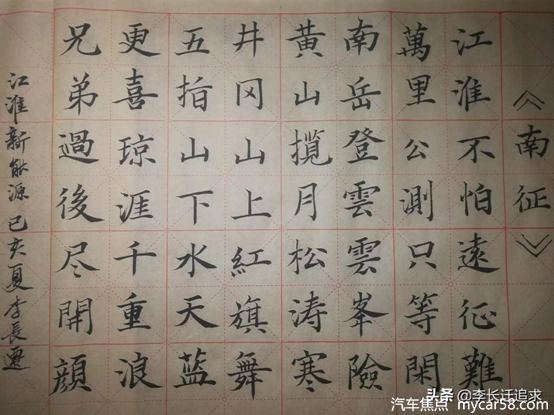 《南征》
江淮不怕遠征難
萬里公測只等閑
南岳登雲雲峯險
黄山揽月松涛寒
井冈山上紅旗舞
五指山下水天藍
更喜琼涯千重浪
兄弟過後尽開顔
江淮新能源 己亥夏李長遷
头条 @李长迁追求
汽车焦点 mycar58.com